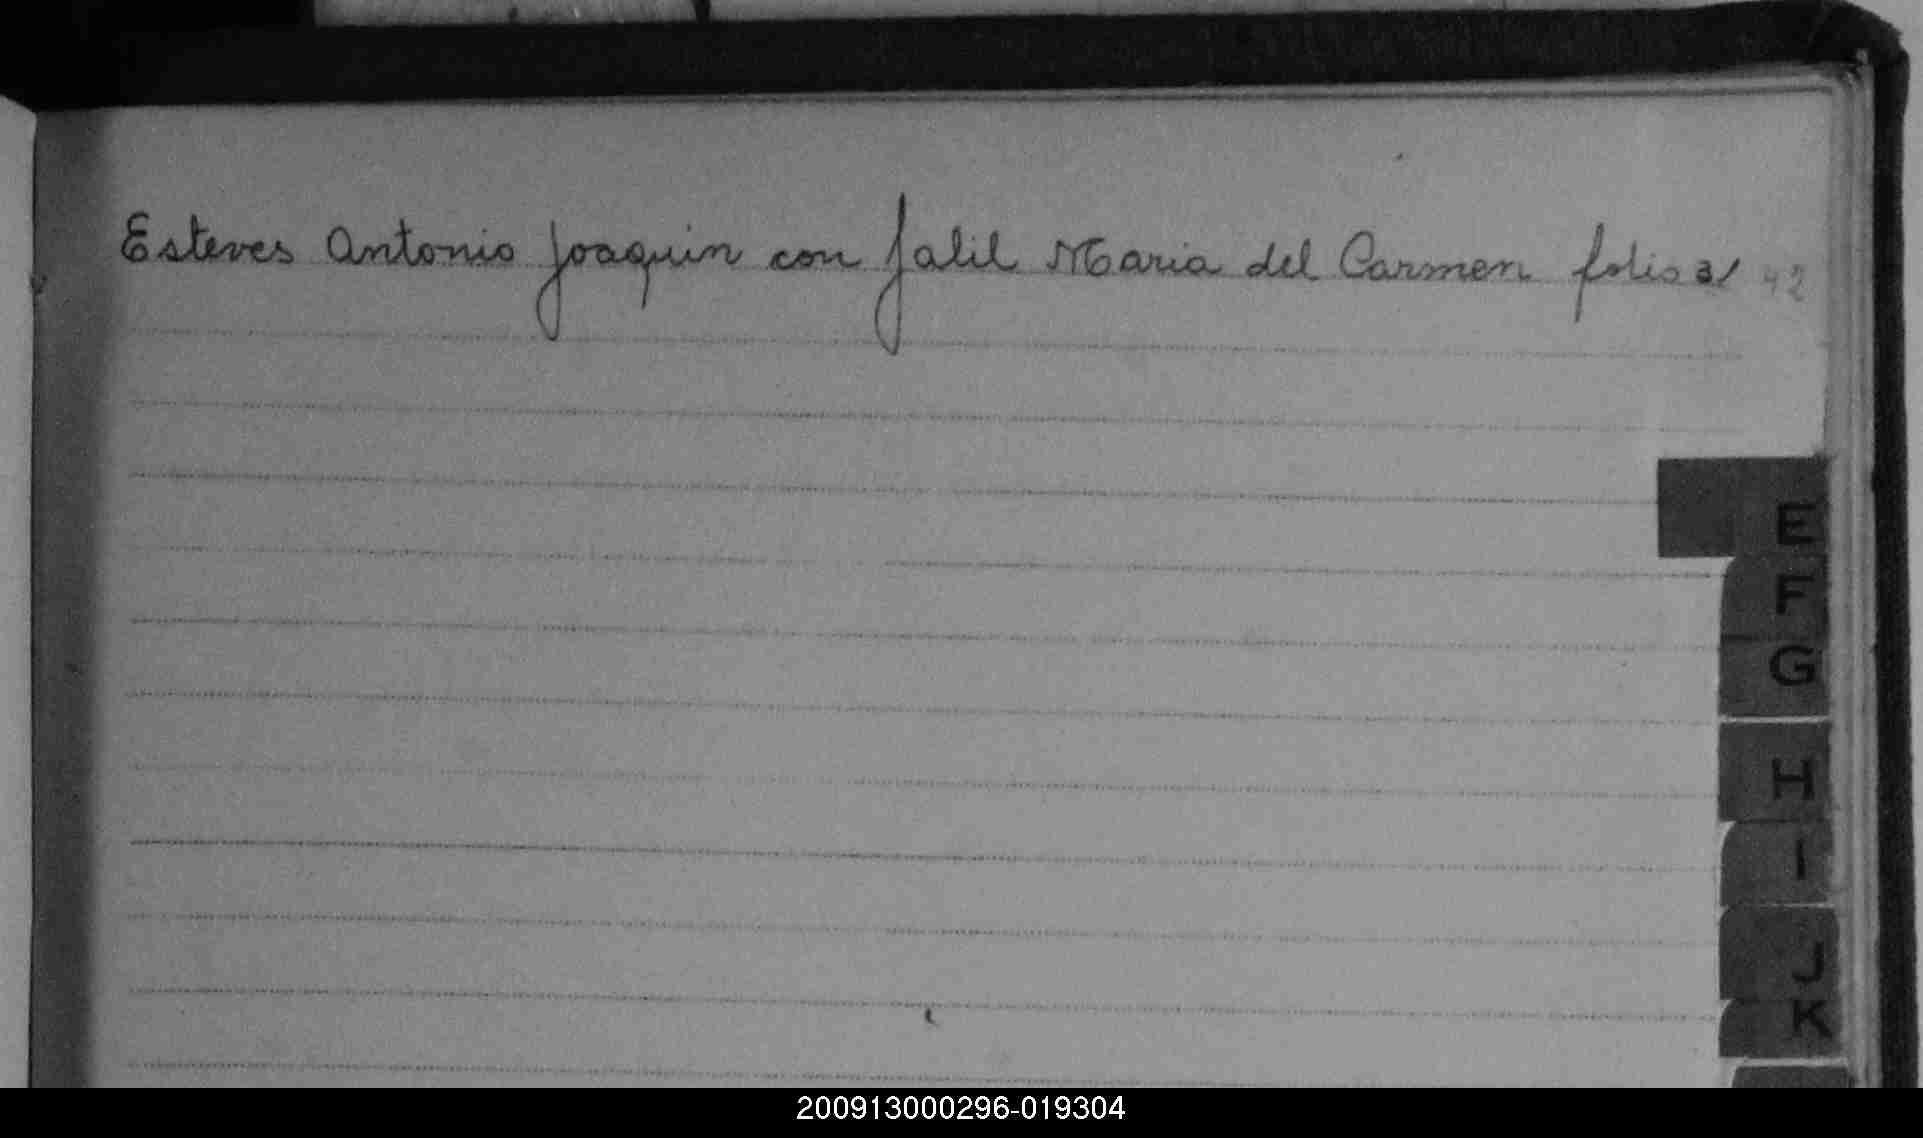 Esteves Antonio Joaquin con Jalil Maria del Carmen folio 31 42
E
F
G
H
I
J
K
200913000296-019304